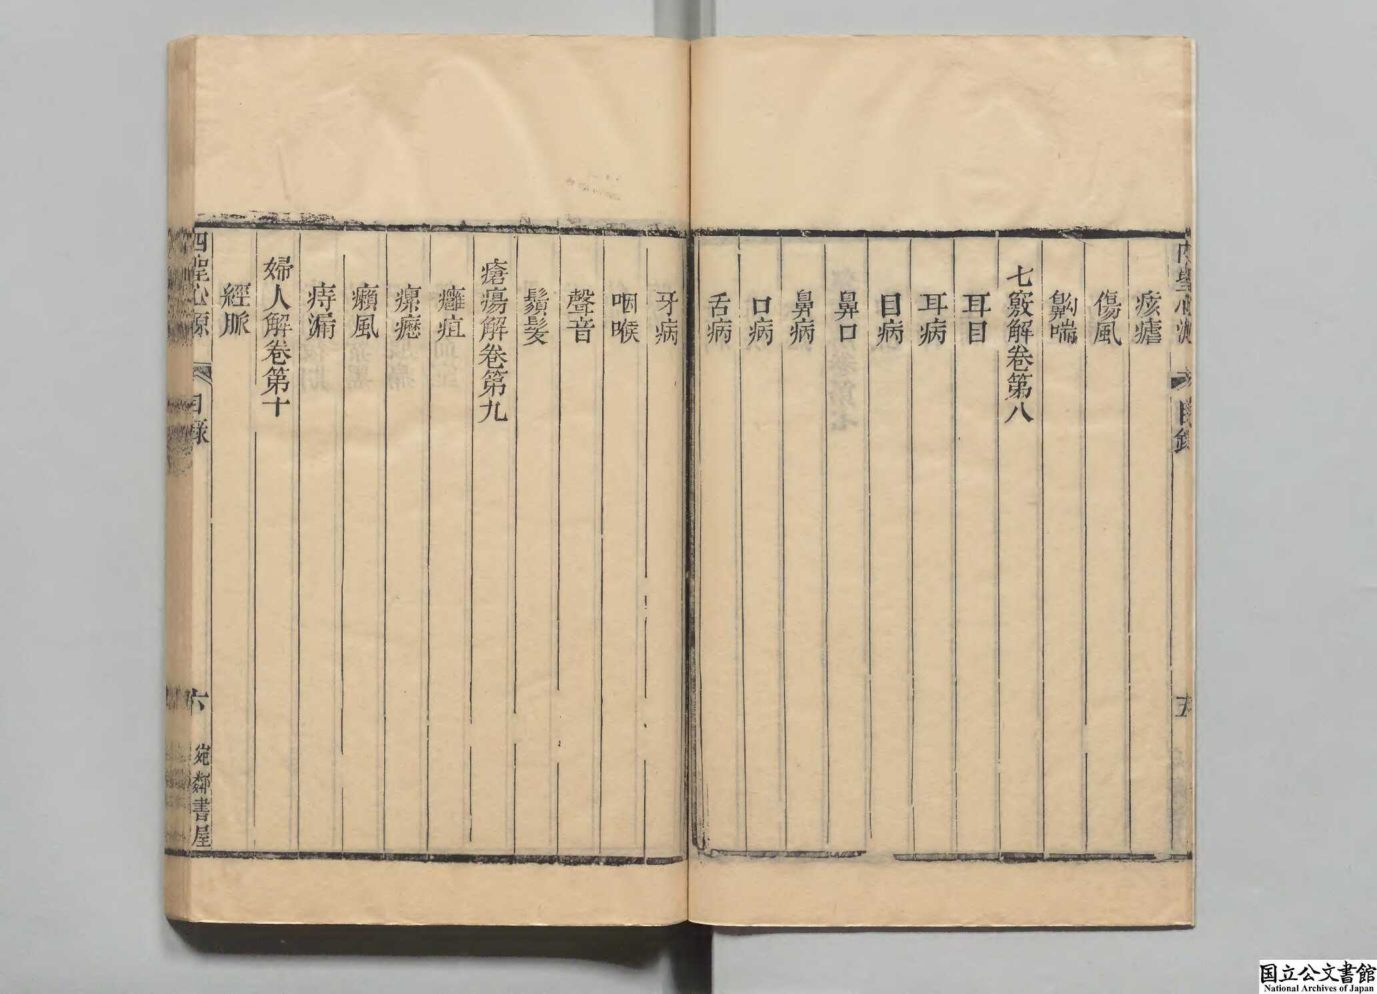 痎瘧
傷風
齁喘
七竅解卷第八
耳目
耳病
目病
鼻口
鼻病
口病
舌病
牙病
咽喉
聲音
鬚髮
瘡瘍解卷第九
癰疽
瘰癧
癩風
痔漏
婦人解卷第十
經脈
四聖心源
目錄
六
宛鄰書屋
国立公文書館
National Archives of Japan